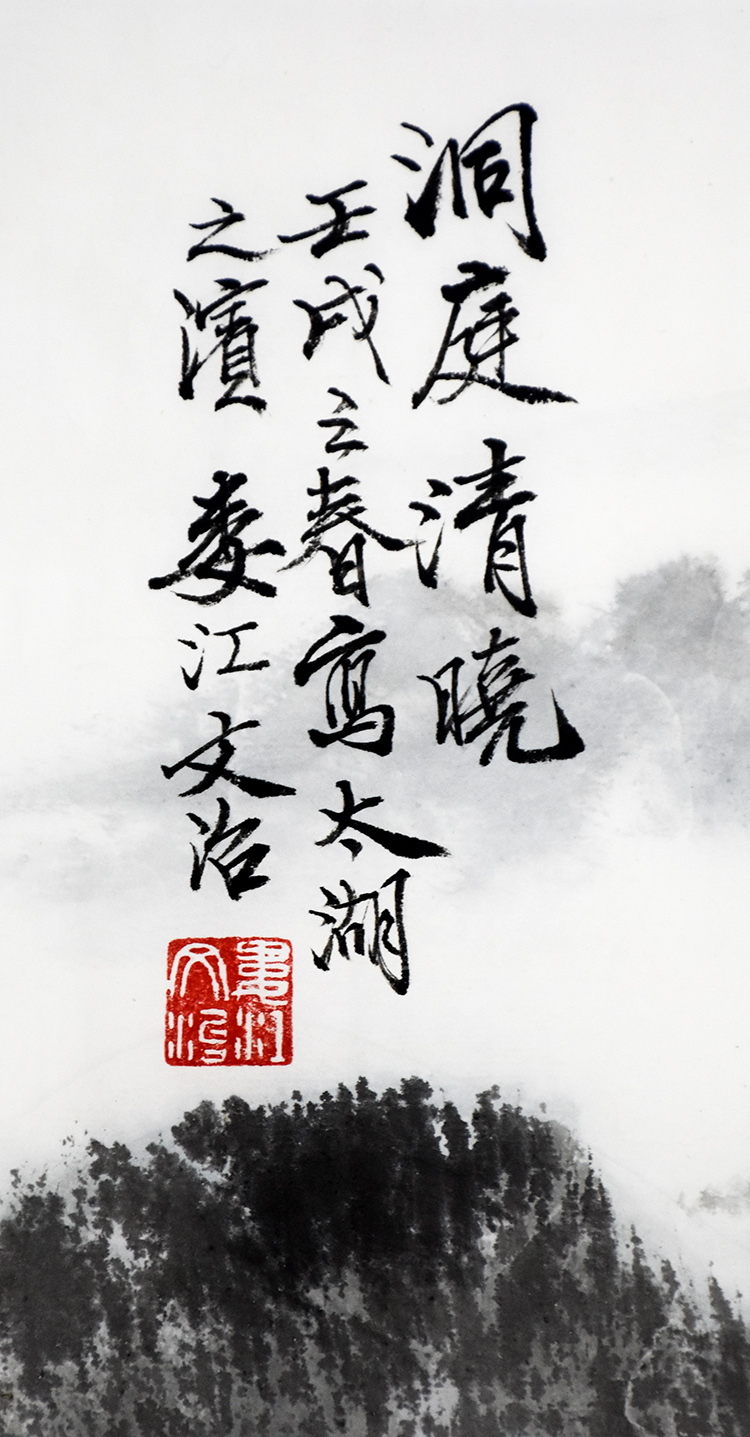 洞庭清曉
壬戌之春寫太湖
之濱 婁江文治
文治